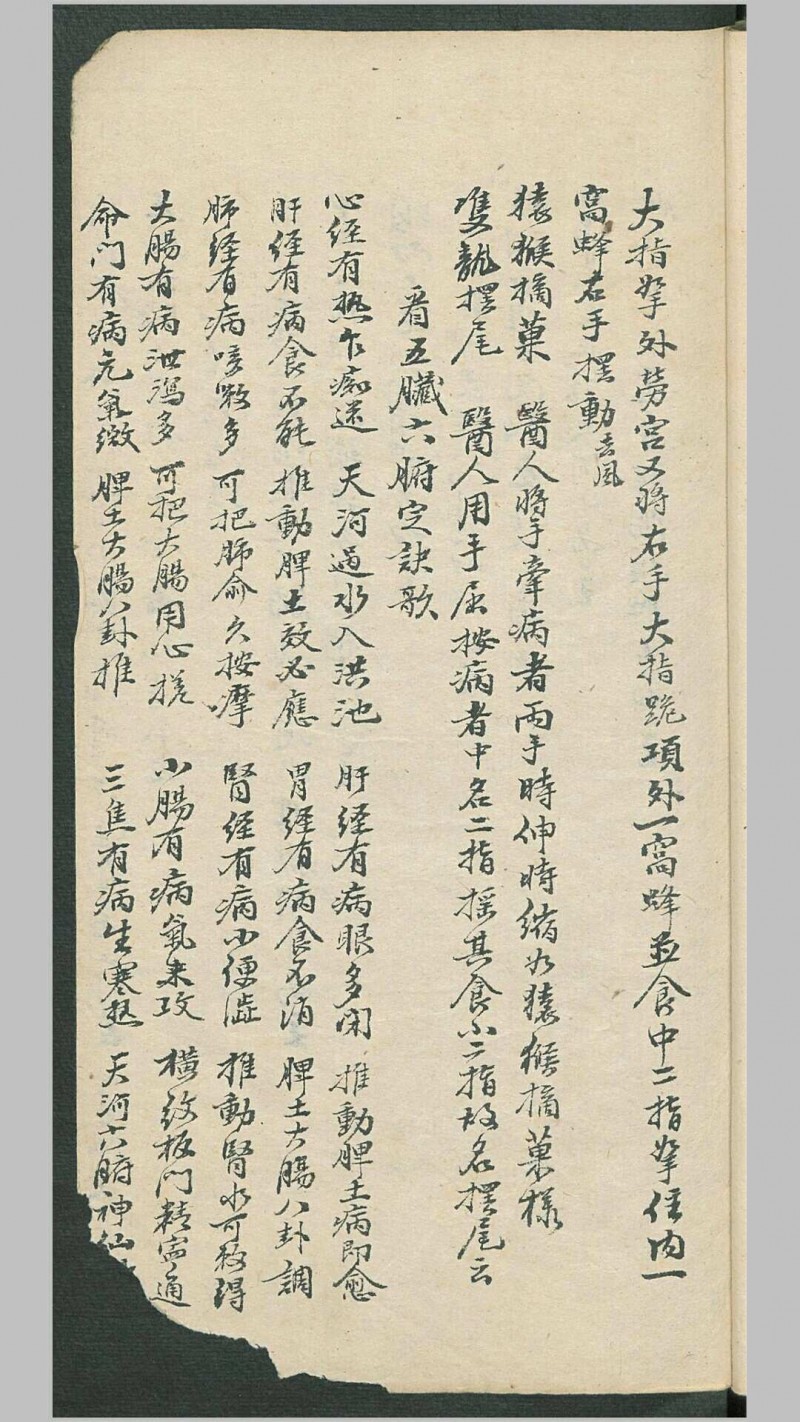 大指拏外勞宮又將右手大指跪項外一窩蜂並食中二指拏住内一
窩蜂右手擺動去風
猿猴摘菓　醫人將手牽病者両手時伸時縮如猿猴摘菓樣
雙龍擺尾　醫人用手屈按病者中名二指搖其食小二指故名擺尾云
看五臟六腑定訣歌
心経有熱乍痴迷　天河過水入洪池　肝経有病眼多閑　推動脾土病即愈
肝経有病食不能　推動脾土效必應　胃経有病食不消　脾土大腸八卦調
肺経有病咳嗽多　可把肺俞久按摩　腎経有病小便澁　推動腎水可救得
大腸有病泄瀉多　可把大腸用心搓　小腸有病氣来攻　橫紋板門精寧通
命门有病元氣微　脾土大腸八卦推　三焦有病生寒熱　天河六腑神仙